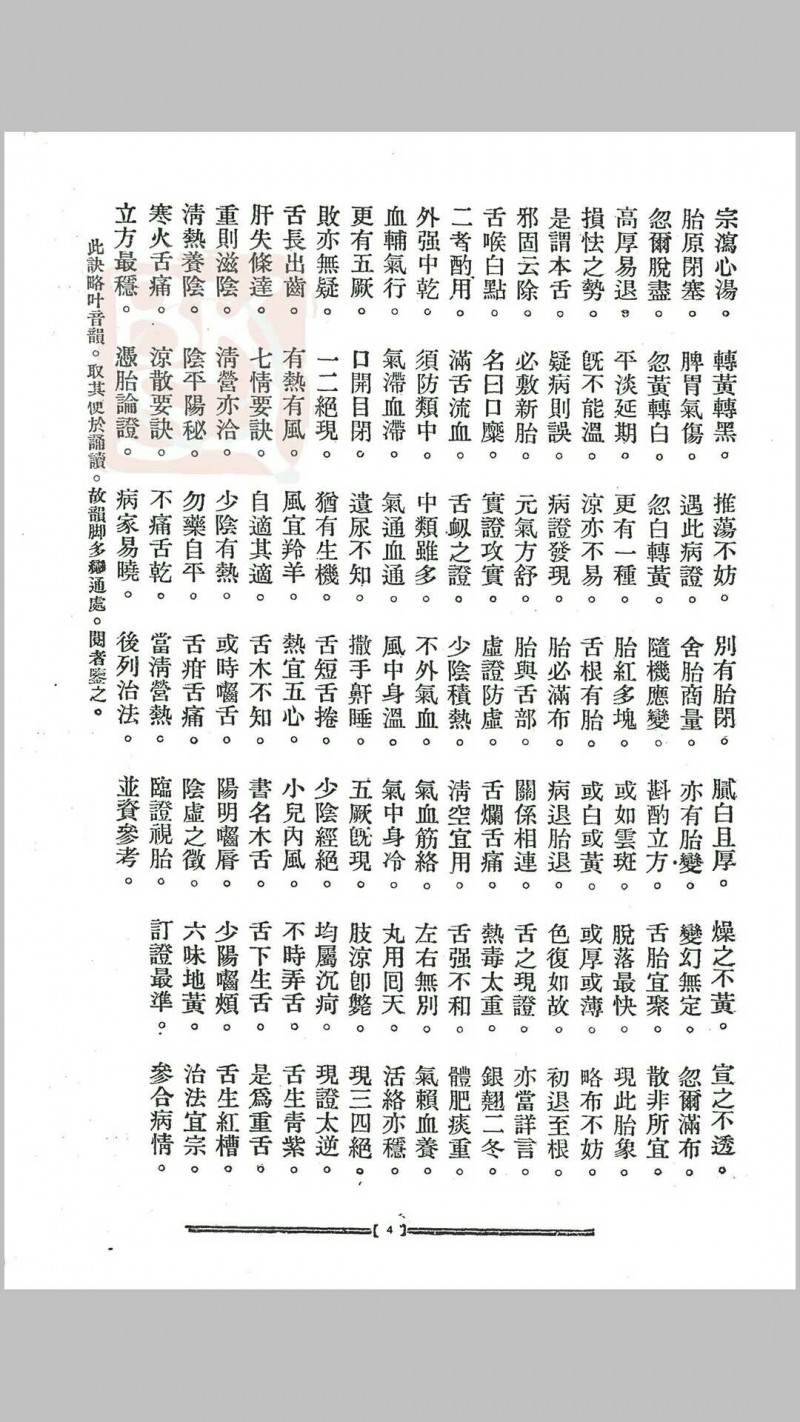 宗瀉心湯。轉黃轉黑。推蕩不妨。別有胎閉。膩白且厚。燥之不黃。宣之不透。
胎原閉塞。脾胃氣傷。遇此病證。舍胎商量。亦有胎變。變幻無定。忽爾滿布。
忽爾脫盡。忽黃轉白。忽白轉黃。隨機應變。斟酌立方。舌胎宜聚。散非所宜。
高厚易退。平淡延期。更有一種。胎紅多塊。或如雲斑。脫落最快。現此胎象。
損怯之勢。旣不能溫。涼亦不易。舌根有胎。或白或黃。或厚或薄。略布不妨。
是謂本舌。疑病則誤。病證發現。胎必滿布。病退胎退。色復如故。初退至根。
邪固云除。必敷新胎。元氣方舒。胎與舌部。關係相連。舌之現證。亦當詳言。
舌喉白點。名曰口糜。實證攻實。虛證防虛。舌爛舌痛。熱毒太重。銀翹二冬。
二考酌用。滿舌流血。舌衂之證。少陰積熱。淸空宜用。舌强不和。體肥痰重。
外强中乾。須防類中。中類雖多。不外氣血。氣血筋絡。左右無別。氣賴血養。
血輔氣行。氣滯血滯。氣通血通。風中身溫。氣中身冷。丸用囘天。活絡亦穩。
更有五厥。口開目閉。遺尿不知。撒手鼾睡。五厥旣現。肢涼卽斃。現三四絕。
敗亦無疑。一二絕現。猶有生機。舌短舌捲。少陰經絕。均屬沉疴。現證太逆。
舌長出齒。有熱有風。風宜羚羊。熱宜五心。小兒內風。不時弄舌。舌生靑紫。
肝失條達。七情要訣。自適其適。舌木不知。書名木舌。舌下生舌。是爲重舌。
重則滋陰。淸營亦洽。少陰有熱。或時嚙舌。陽明嚙脣。少陽嚙頰。舌生紅槽。
淸熱養陰。陰平陽秘。勿藥自平。舌疳舌痛。陰虛之徵。六味地黃。治法宜宗。
寒火舌痛。涼散要訣。不痛舌乾。當淸營熱。臨證視胎。訂證最準。參合病情。
立方最穩。憑胎論證。病家易曉。後列治法。並資參考。
此訣略叶音韻。取其便於誦讀。故韻脚多通處。閱者鑒之。
【4】